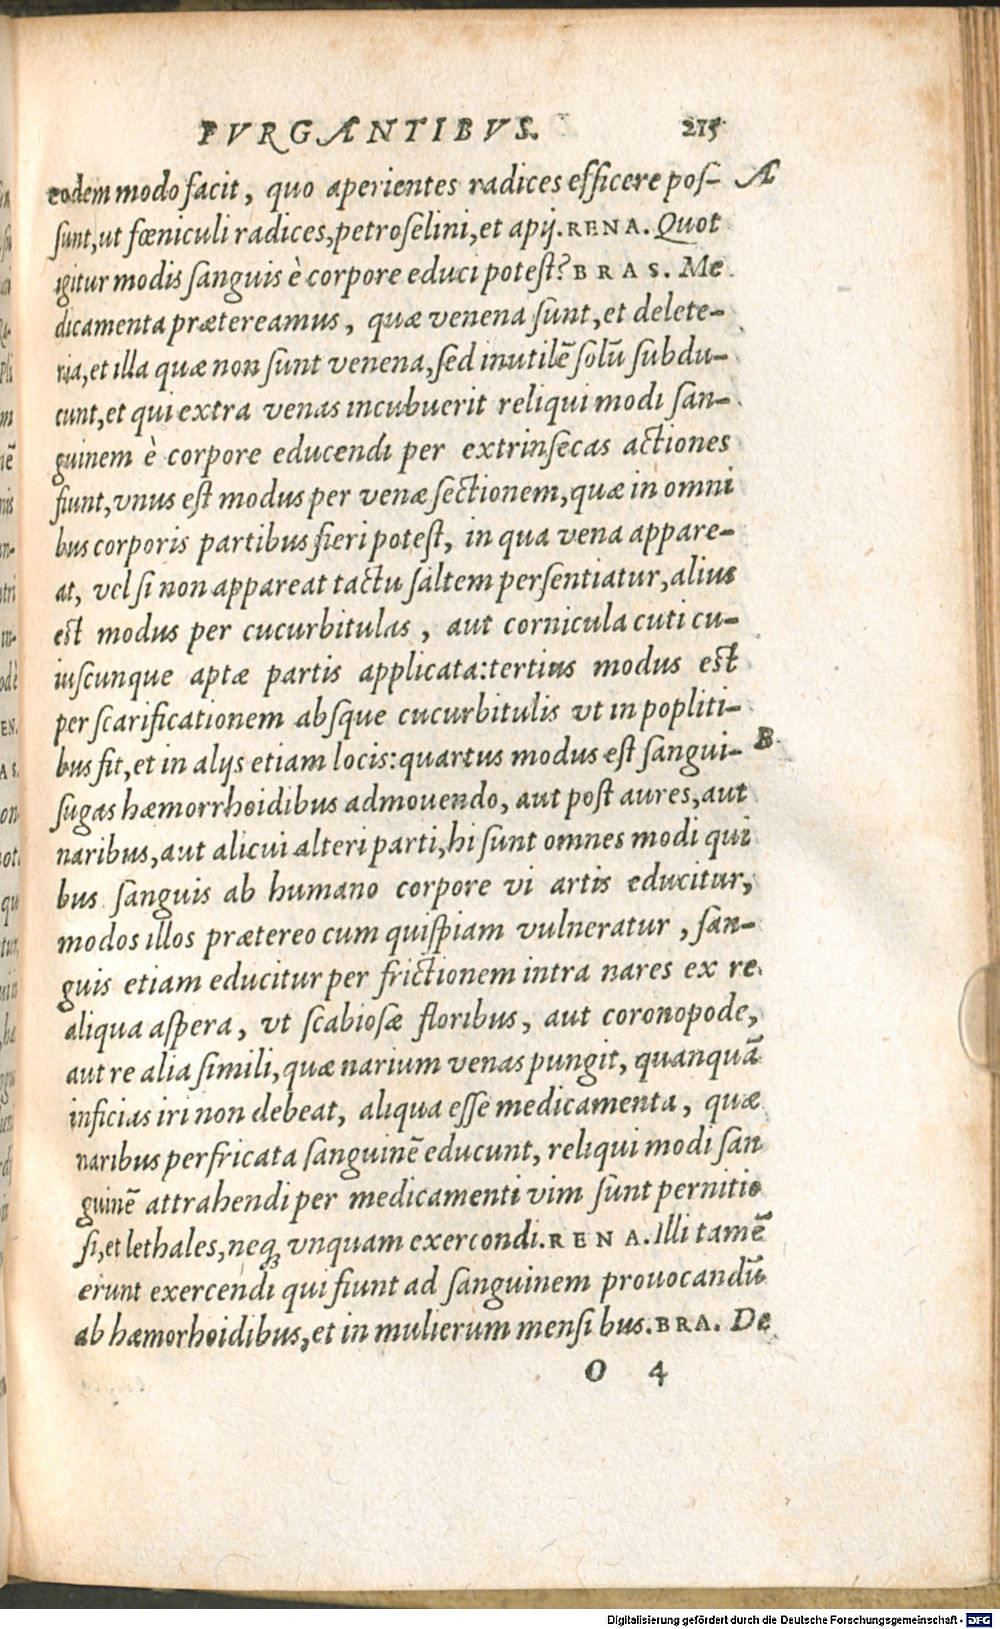 PVRGANTIBVS. 215
eodem modo facit, quo aperientes radices efficere pos- A
sunt, ut fœniculi radices, petroselini, et apij. RENA. Quot
igitur modis sanguis è corpore educi potest? BRAS. Me
dicamenta prætereamus, quæ venena sunt, et delete-
ria, et illa quæ non sunt venena, sed inutilē solū subdu-
cunt, et qui extra venas incubuerit reliqui modi san-
guinem è corpore educendi per extrinsecas actiones
fiunt, vnus est modus per venæ sectionem, quæ in omni
bus corporis partibus fieri potest, in qua vena appare-
at, vel si non appareat tactu saltem persentiatur, alius
est modus per cucurbitulas, aut cornicula cuti cu-
iuscunque aptæ partis applicata: tertius modus est
per scarificationem absque cucurbitulis vt in popliti-
bus fit, et in alijs etiam locis: quartus modus est sangui- B
sugas hæmorrhoidibus admouendo, aut post aures, aut
naribus, aut alicui alteri parti, hi sunt omnes modi qui
bus sanguis ab humano corpore vi artis educitur,
modos illos prætereo cum quispiam vulneratur, san-
guis etiam educitur per frictionem intra nares ex re
aliqua aspera, vt scabiosæ floribus, aut coronopode,
aut re alia simili, quæ narium venas pungit, quanquā
inficias iri non debeat, aliqua esse medicamenta, quæ
naribus perfricata sanguinē educunt, reliqui modi san
guinē attrahendi per medicamenti vim sunt pernitio
si, et lethales, neq; vnquam exercondi. RENA. Illi tamē
erunt exercendi qui fiunt ad sanguinem prouocandū
ab hæmorhoidibus, et in mulierum mensibus. BRA. De
O 4
Digitalisierung gefördert durch die Deutsche Forschungsgemeinschaft - DFG